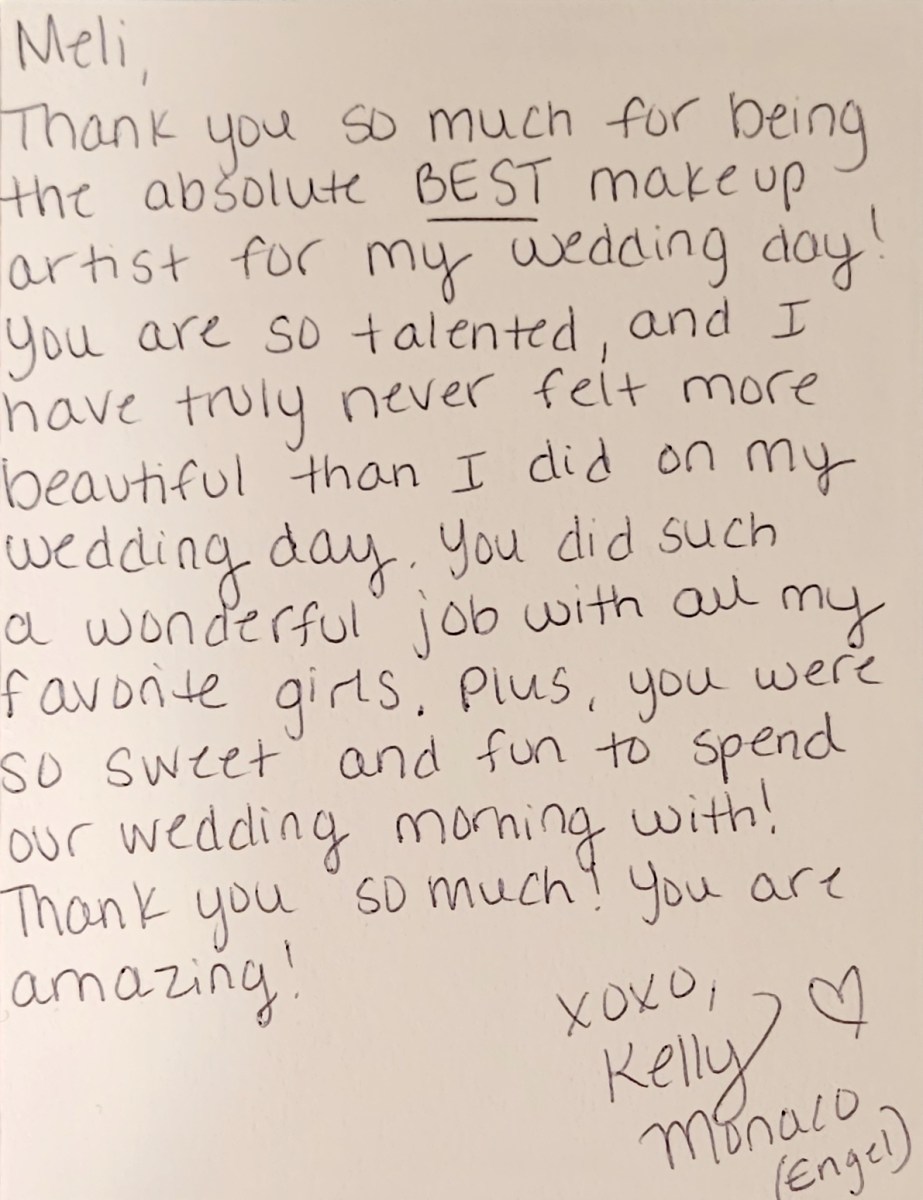 Meli,
Thank you so much for being
the absolute BEST makeup
artist for my wedding day!
You are so talented, and I
have truly never felt more
beautiful than I did on my
wedding day. You did such
a wonderful job with all my
favorite girls. Plus, you were
so sweet and fun to spend
our wedding morning with!
Thank you so much! You are
amazing!
xoxo,
Kelly
Monaco
(Engel)